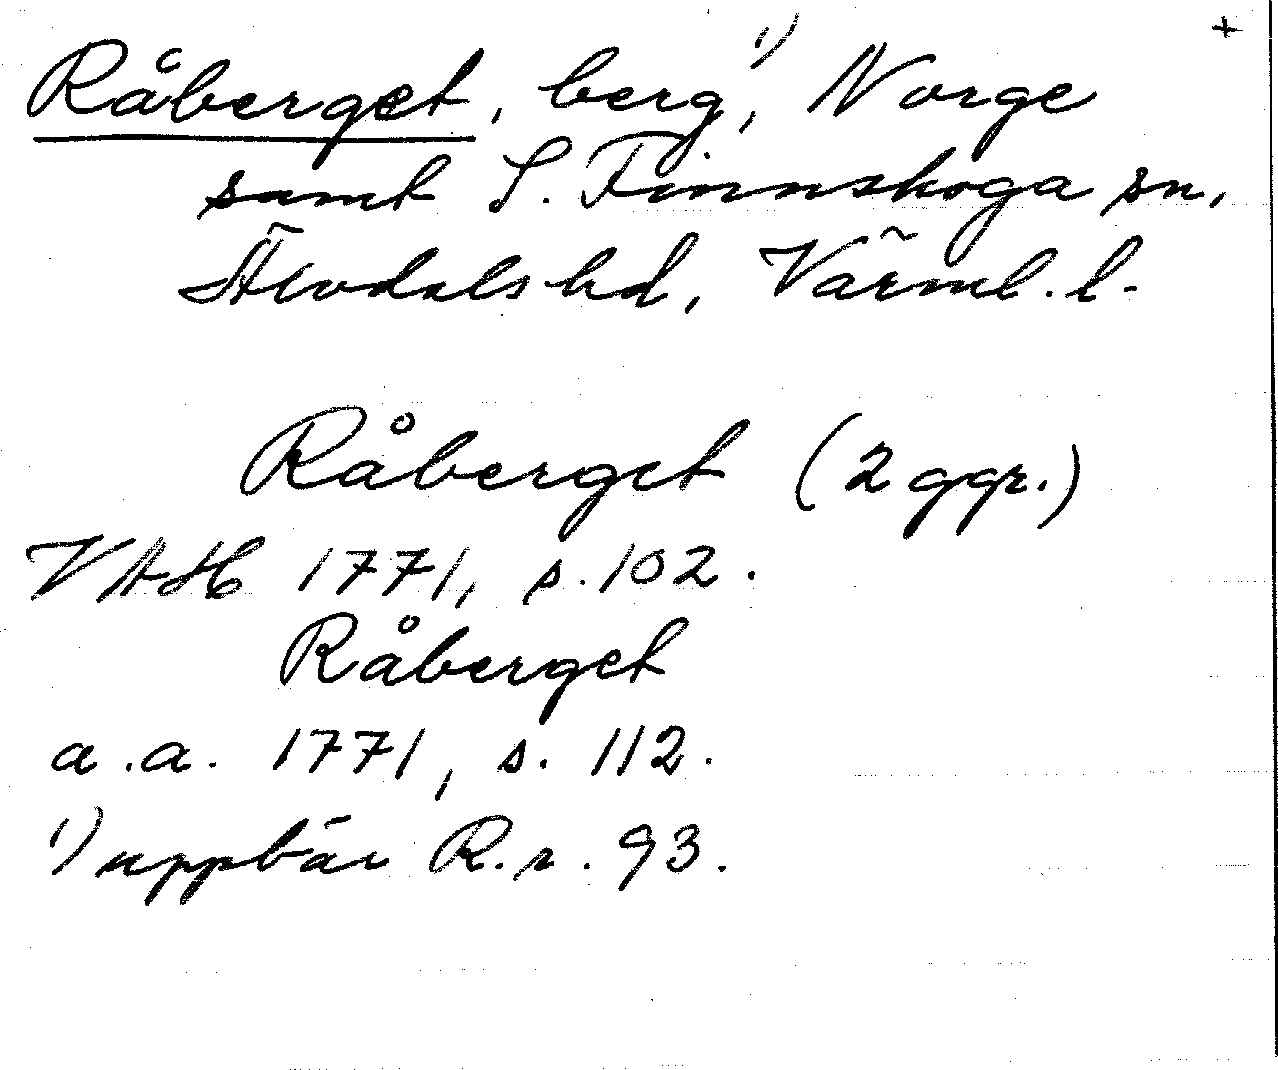 Råberget, berg,¹) Norge +
samt S. Finnskoga sn,
Älvdals hd, Värml. l.
Råberget (2 ggr.)
VAH 1771, s. 102.
Råberget
a.a. 1771, s. 112.
¹) uppbär R.r. 93.